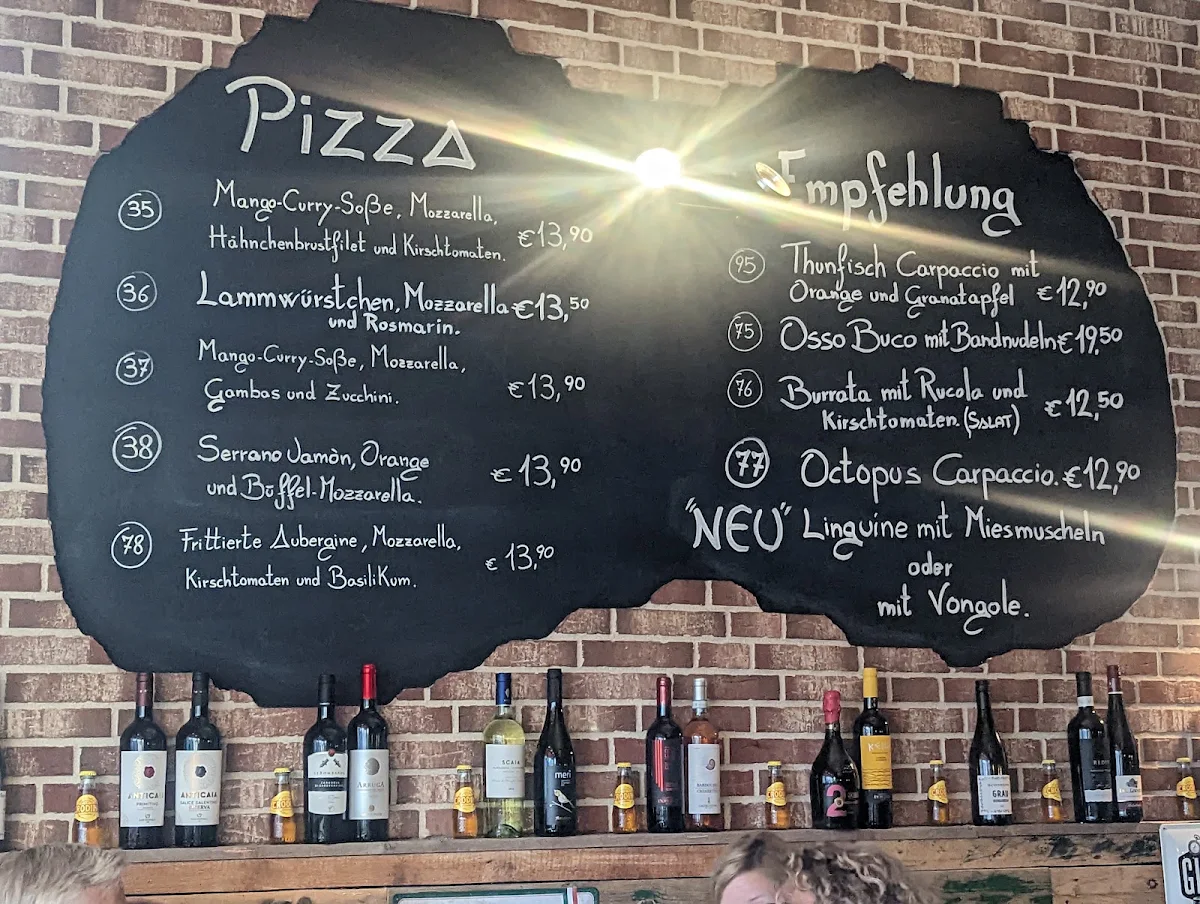 Pizza
35 Mango-Curry-Soße, Mozzarella,
Hähnchenbrustfilet und Kirschtomaten. €13,90
36 Lammwürstchen, Mozzarella €13,50
und Rosmarin.
37 Mango-Curry-Soße, Mozzarella,
Gambas und Zucchini. €13,90
38 Serrano Jamòn, Orange
und Büffel-Mozzarella. €13,90
78 Frittierte Aubergine, Mozzarella,
Kirschtomaten und Basilikum. €13,90
Empfehlung
95 Thunfisch Carpaccio mit
Orange und Granatapfel €12,90
75 Osso Buco mit Bandnudeln €19,50
76 Burrata mit Rucola und
Kirschtomaten. (SALAT) €12,50
77 Octopus Carpaccio. €12,90
"NEU" Linguine mit Miesmuscheln
oder
mit Vongole.
ANTICAIA
SCAIA
meri
2